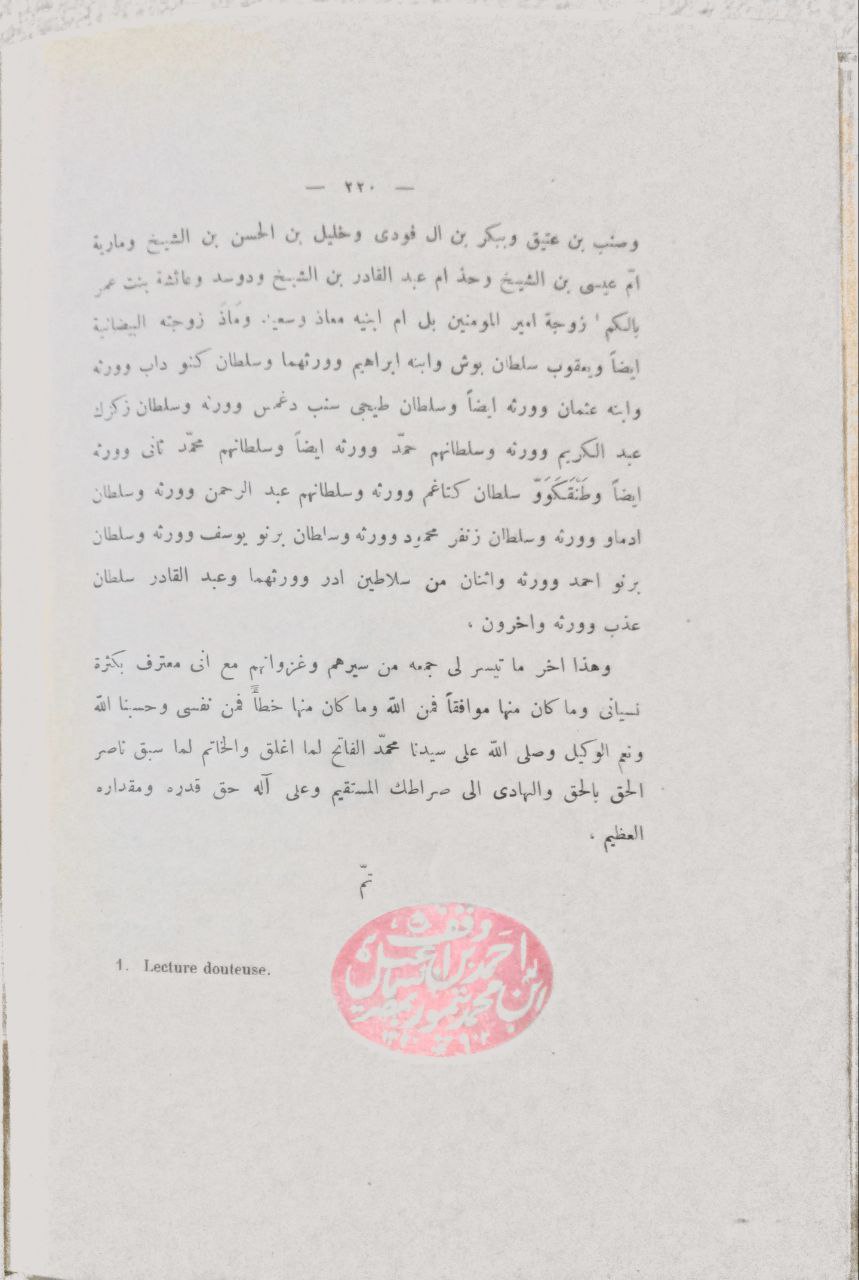 — ٢٢٠ —
وصنب بن عتيق وببكر بن ال فودى وخليل بن الحسن بن الشيخ ومارية
امّ عيسى بن الشيخ وحذ ام عبد القادر بن الشيخ ودوسد وعائشة بنت عمر
بالكم ¹ زوجة امير المومنين بل ام ابنيه معاذ وسعيد وماذ زوجته البيضانية
ايضاً ويعقوب سلطان بوش وابنه ابراهيم وورثهما وسلطان كنو داب وورثه
وابنه عثمان وورثه ايضاً وسلطان طيجى سنب دغمس وورثه وسلطان زكزك
عبد الكريم وورثه وسلطانهم حمدّ وورثه ايضاً وسلطانهم محمّد ثانى وورثه
ايضاً وطَنْقَكَوَوّ سلطان كتاغم وورثه وسلطانهم عبد الرحمن وورثه وسلطان
ادماو وورثه وسلطان زنفر محمود وورثه وسلطان برنو يوسف وورثه وسلطان
برنو احمد وورثه واثنان من سلاطين ادر وورثهما وعبد القادر سلطان
عذب وورثه واخرون ،
وهذا اخر ما تيسر لى جمعه من سيرهم وغزواتهم مع انى معترف بكثرة
نسيانى وما كان منها موافقاً فمن الله وما كان منها خطأً فمن نفسى وحسبنا الله
ونعم الوكيل وصلى الله على سيدنا محمّد الفاتح لما اغلق والخاتم لما سبق ناصر
الحق بالحق والهادى الى صراطك المستقيم وعلى آله حق قدره ومقداره
العظيم .
تمّ
1. Lecture douteuse.
وقف
احمد بن اسماعيل
ابن محمد تيمور بمصر